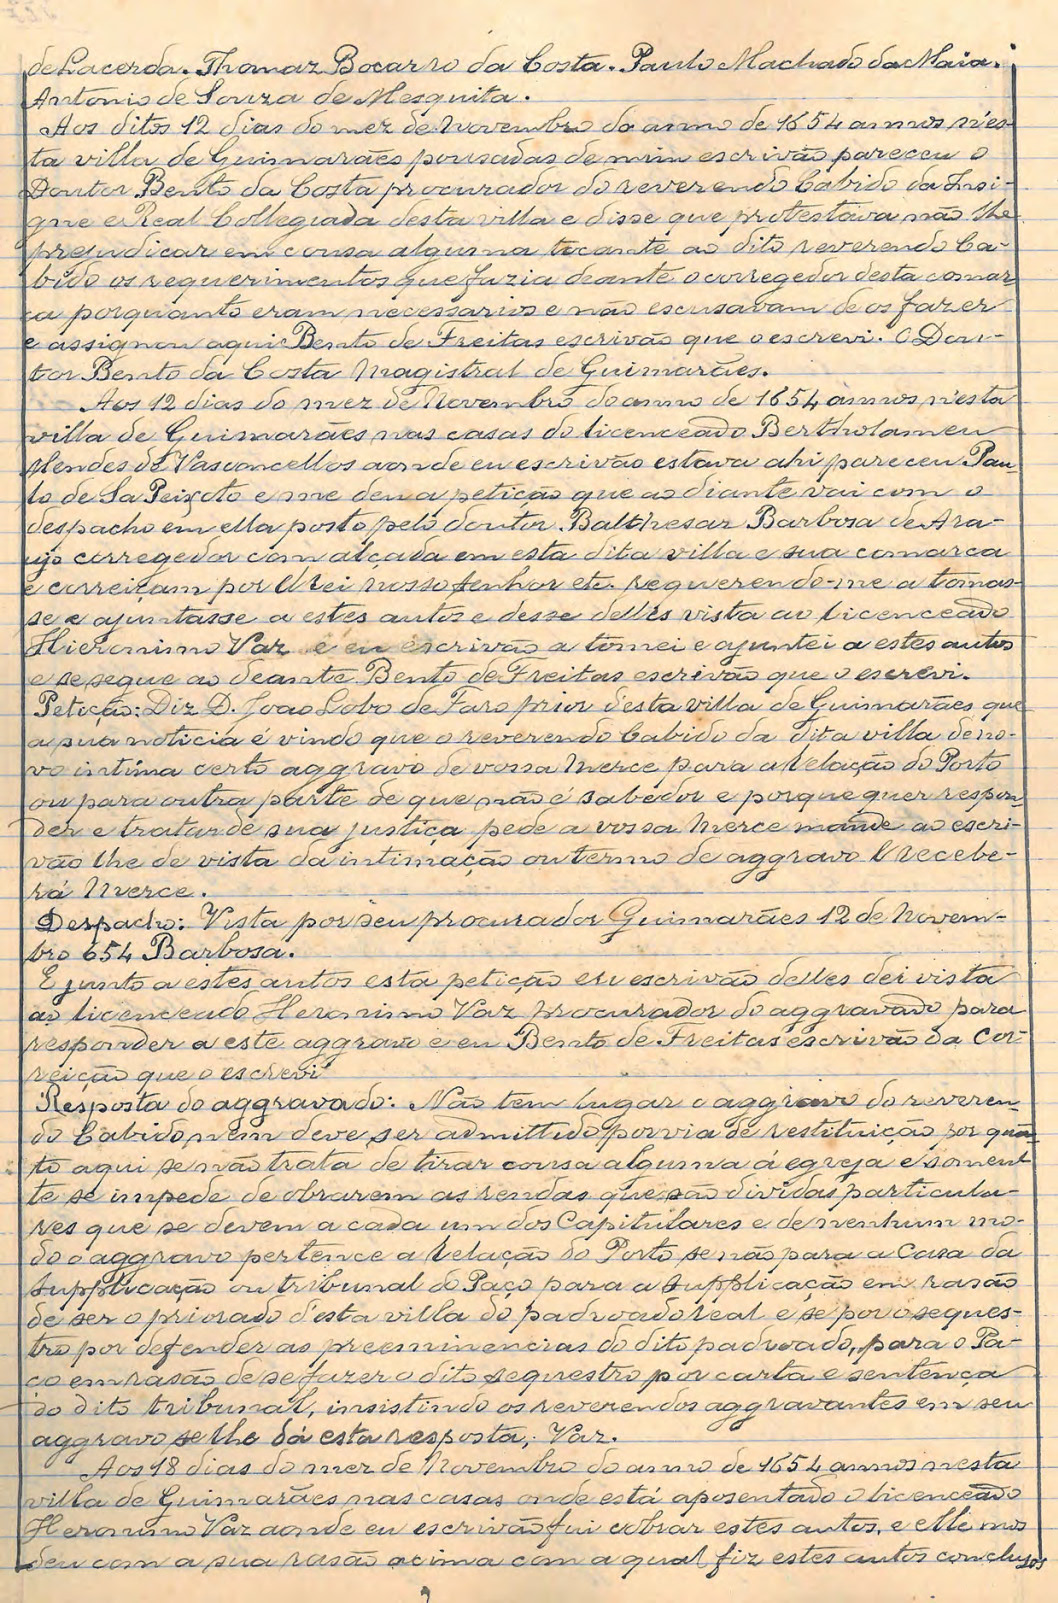 de Lacerda. Thomaz Bocarro da Costa. Paulo Machado da Maia.
Antonio de Souza de Mesquita.
Aos ditos 12 dias do mez de Novembro do anno de 1654 annos n'es-
ta villa de Guimarães pousadas de mim escrivão pareceu o
Doutor Bento da Costa procurador do reverendo Cabido da Insi-
gne e Real Collegiada desta villa e disse que protestava não lhe
prejudicar em cousa alguma tocante ao dito reverendo Ca-
bido os requerimentos que fazia deante o corregedor desta comar
ca porquanto eram necessarios e não escusavam de os fazer
e assignou aqui Bento de Freitas escrivão que o escrevi. O Dou-
tor Bento da Costa Magistral de Guimarães.
Aos 12 dias do mez de Novembro do anno de 1654 annos n'esta
villa de Guimarães nas casas do licenceado Bertholameu
Mendes de Vasconcellos aonde eu escrivão estava ahi pareceu Pau-
lo de Sa Peixoto e me deu a petição que ao diante vai com o
despacho em ella posto pelo doutor Balthesar Barbosa de Ara-
ujo corregedor com alçada em esta dita villa e sua comarca
e correiçam por El Rei nosso senhor etc. requerendo-me a tomas-
se e ajuntasse a estes autos e desse delles vista ao licenceado
Hieronimo Vaz e eu escrivão a tomei e ajuntei a estes autos
e se segue ao deante Bento de Freitas escrivão que o escrevi.
Petição: Diz D. Joao Lobo de Faro prior d'esta villa de Guimarães que
a sua noticia é vindo que o reverendo Cabido da dita villa de no-
vo intíma certo aggravo de vossa Merce para a Relação do Porto
ou para outra parte de que não é sabedor e porque quer respon-
der e tratar de sua justiça pede a vossa Merce mande ao escri-
vão lhe de vista da intimação ou termo de aggravo E recebe-
rá Merce.
Despacho: Vista por seu procurador Guimarães 12 de Novem-
bro 654 Barbosa.
E junto a estes autos esta petição eu escrivão delles dei vista
ao licenceado Heronimo Vaz procurador do aggravado para
responder a este aggravo e eu Bento de Freitas escrivão da Cor-
reição que o escrevi
Resposta do aggravado: Não tem lugar o aggravo do reveren-
do Cabido nem deve ser admittido por via de restituição por quan-
to aqui se não trata de tirar cousa alguma á egreja e soment
te se impede de obrarem as rendas que são dividas particula-
res que se devem a cada um dos Capitulares e de nenhum mo-
do o aggravo pertence a Relação do Porto se não para a Casa da
Supplicação ou tribunal do Paço para a Supplicação em rasão
de ser o priorado d'esta villa do padroado real e se por o seques-
tro por defender as preeminencias do dito padroado, para o Pa-
ço em rasão de se fazer o dito sequestro por carta e sentença
do dito tribunal, insistindo os reverendos aggravantes em seu
aggravo se lhe dá esta resposta; Vaz.
Aos 18 dias do mez de Novembro do anno de 1654 annos nesta
villa de Guimarães nas casas onde está aposentado o licenceado
Heronimo Vaz aonde eu escrivão fui cobrar estes autos, e elle mos
deu com a sua rasão acima com a qual fiz estes autos conclusos